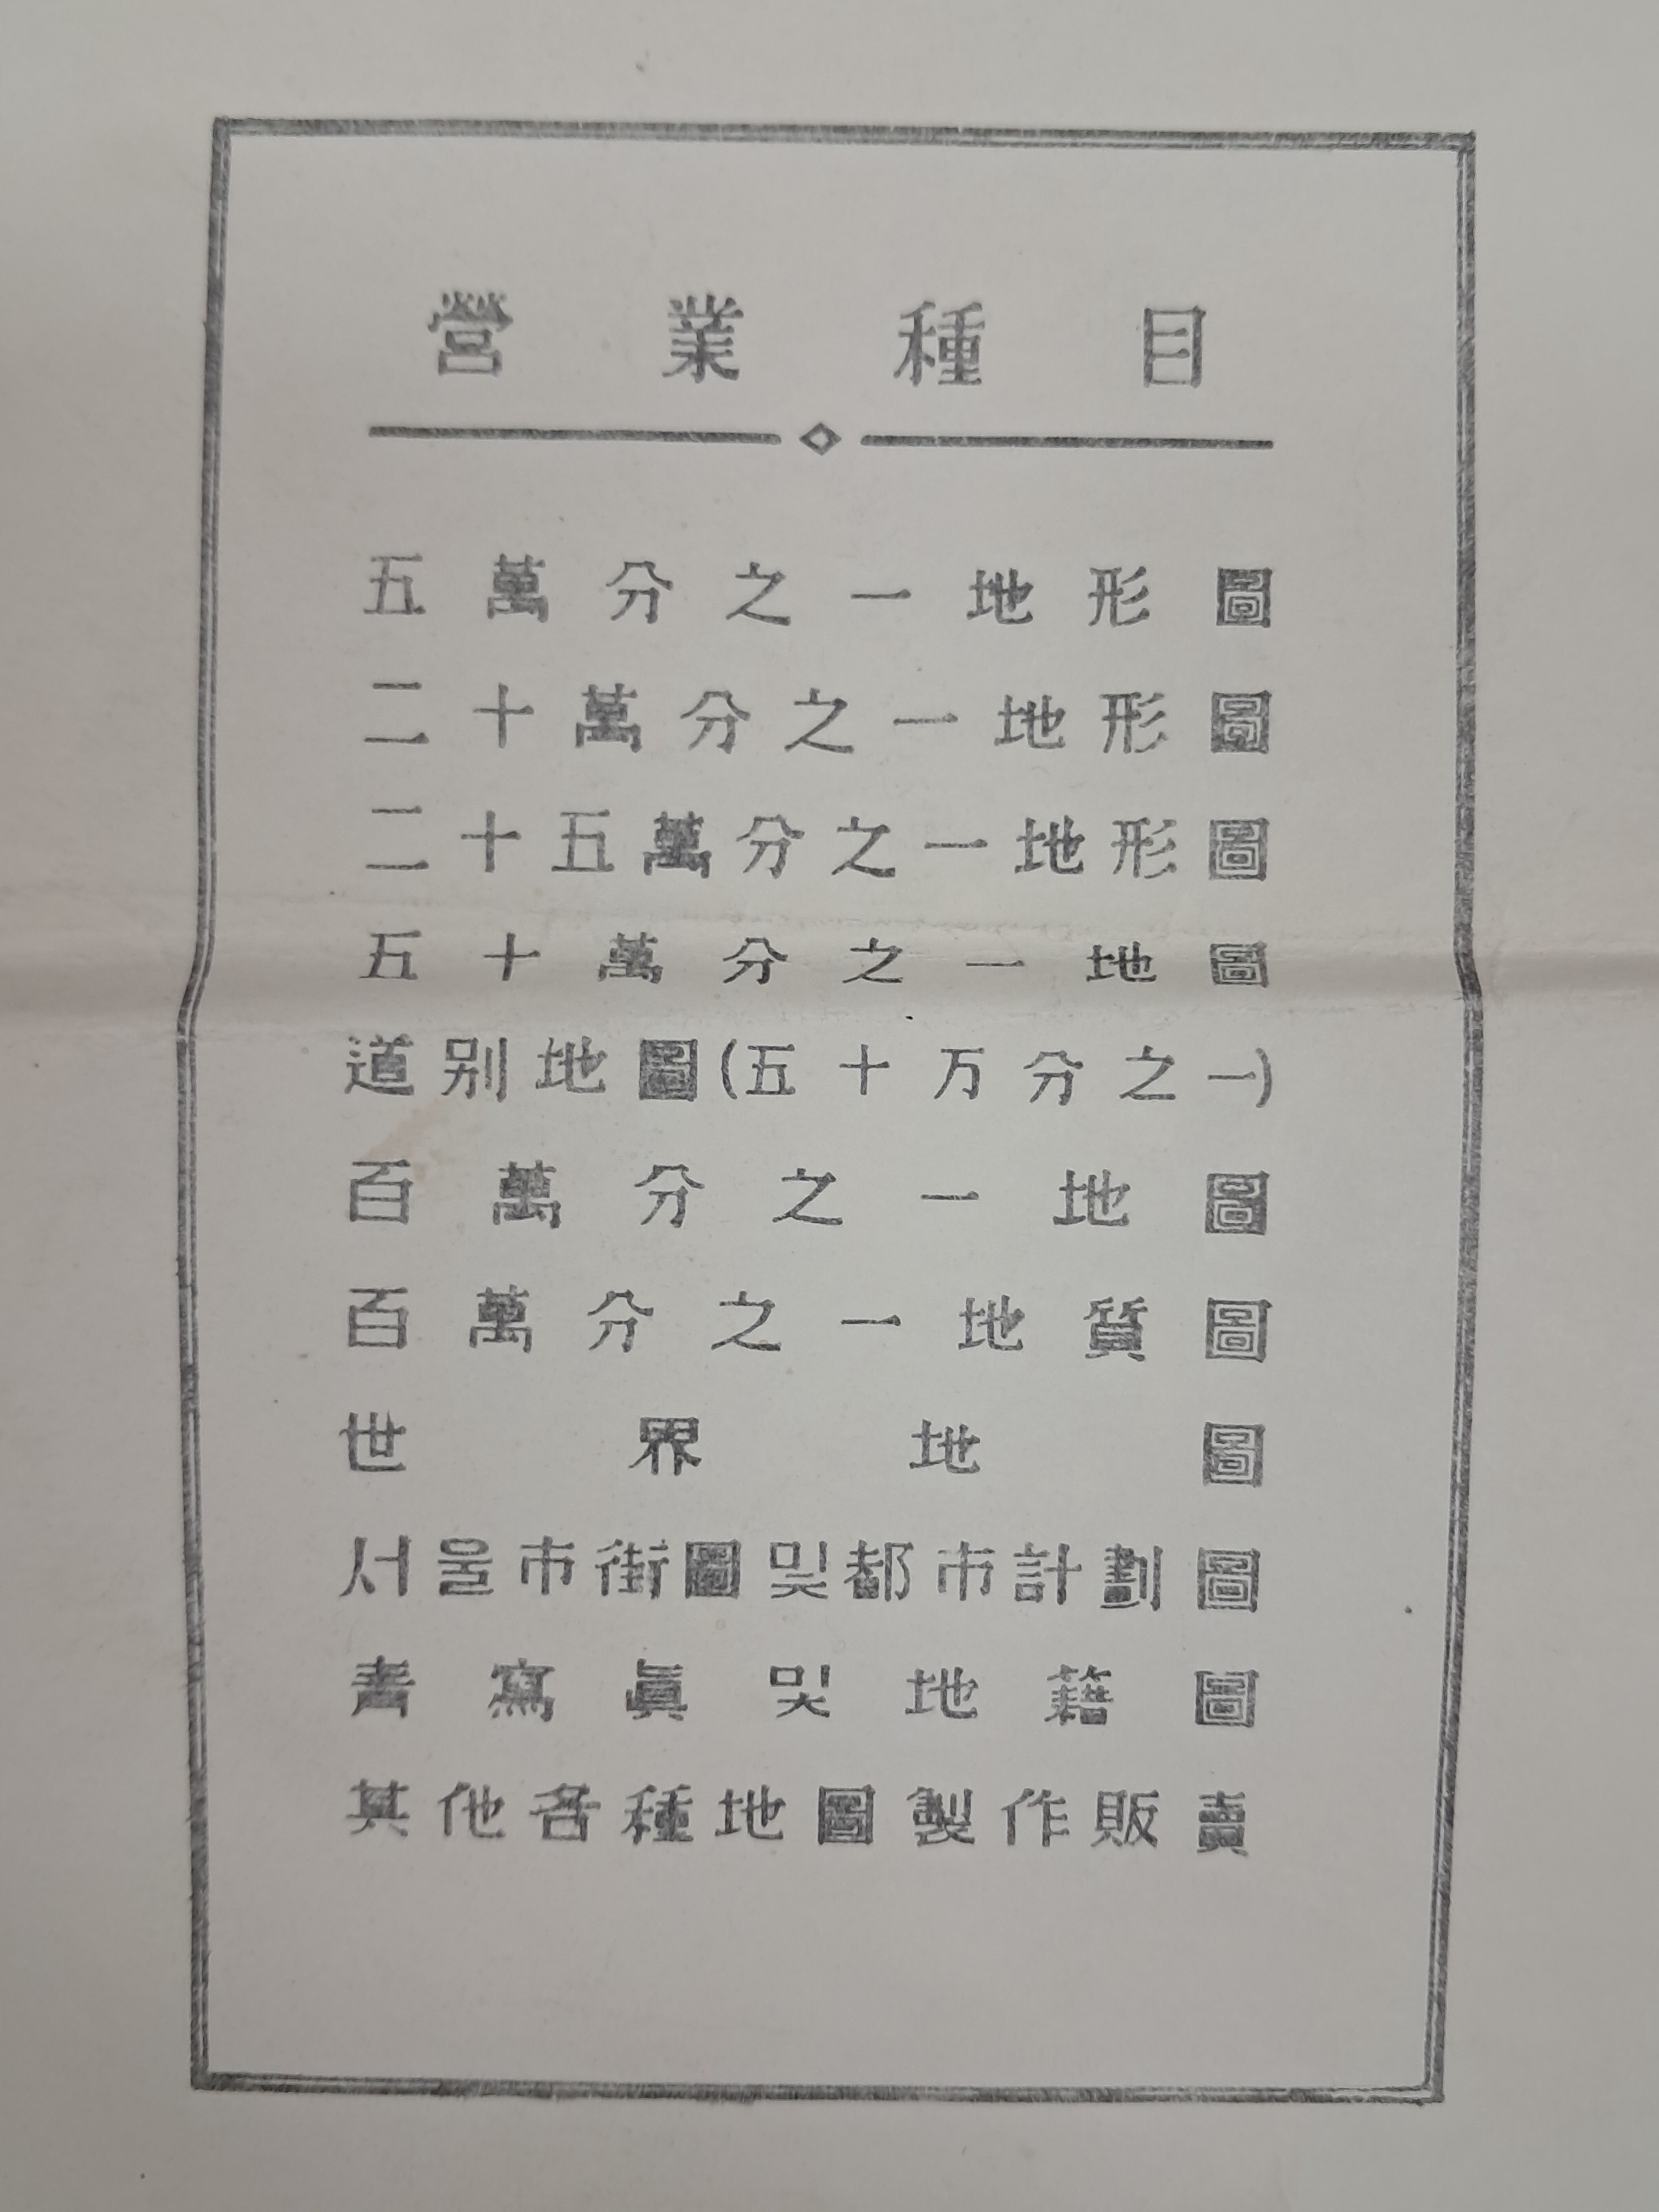 營業種目
五萬分之一地形圖
二十萬分之一地形圖
二十五萬分之一地形圖
五十萬分之一地圖
道別地圖(五十万分之一)
百萬分之一地圖
百萬分之一地質圖
世界地圖
서울市街圖및都市計劃圖
靑寫眞및地籍圖
其他各種地圖製作販賣